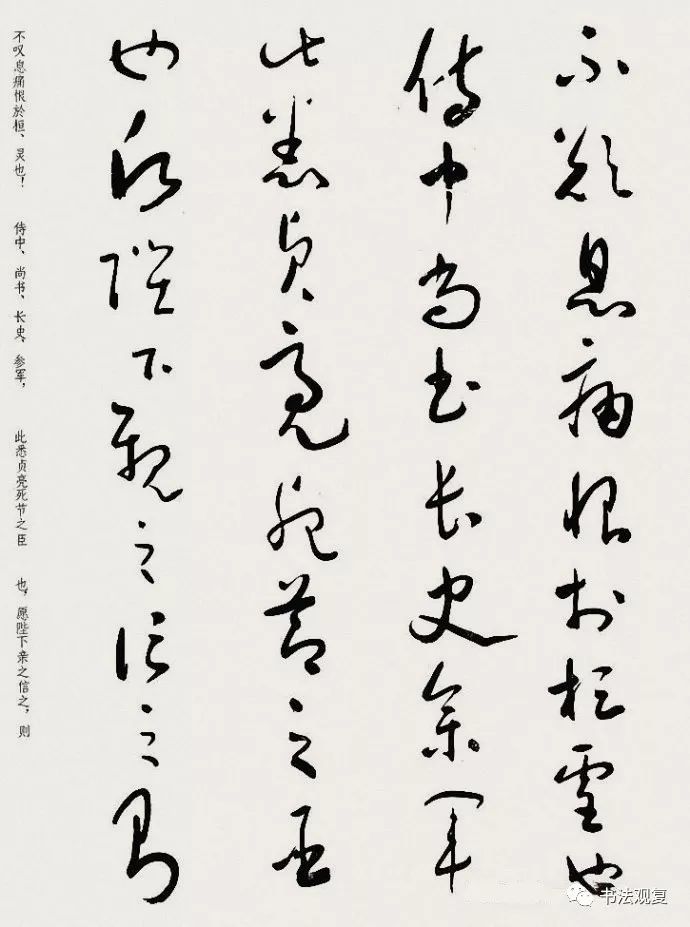 不歎息痛恨於桓靈也
侍中尚書長史參軍
此悉貞亮死節之臣
也願陛下親之信之則
不叹息痛恨於桓、灵也！
侍中、尚书、长史、参军，
此悉贞亮死节之臣
也，愿陛下亲之信之，则
书法观复